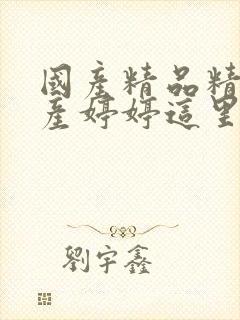 國產精品精
產婷婷這里
劉宇鑫